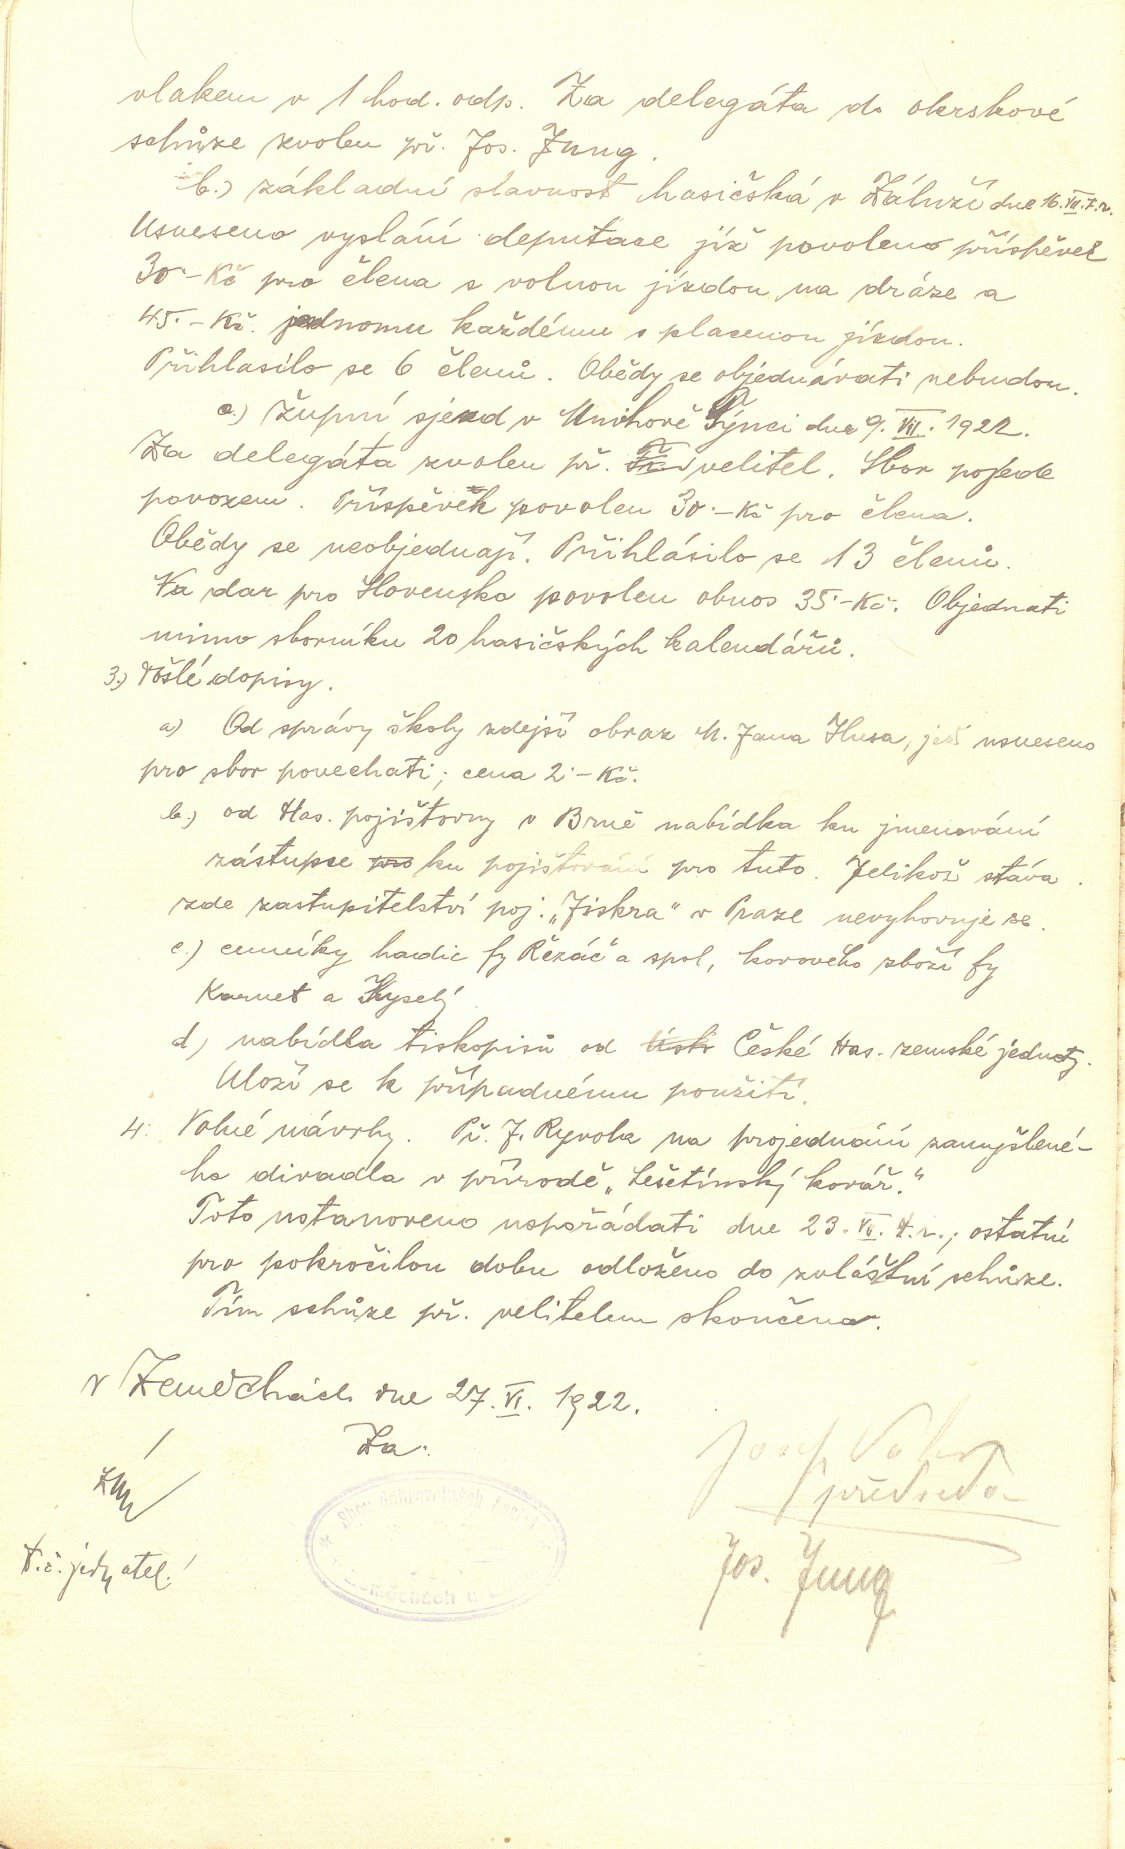 vlakem v 1 hod. odp. Za delegáta do okrskové
schůze zvolen př. Jos. Jung.
b.) základní slavnost hasičská v Záluží dne 16.VII.t.r.
Usneseno vyslání deputace jíž povoleno příspěvek
30·- Kč pro člena s volnou jízdou na dráze a
45.- Kč. jednomu každému s placenou jízdou.
Přihlásilo se 6 členů. Obědy se objednávati nebudou.
c.) župní sjezd v Mnichově Týnci dne 9. VII. 1922.
Za delegáta zvolen př. velitel. Sbor pojede
povozem. Příspěvěk povolen 30·- Kč pro člena.
Obědy se neobjednají. Přihlásilo se 13 členů.
Na dar pro Slovensko povolen obnos 35·- Kč. Objednati
mimo sborníku 20 hasičských kalendářů.
3.) Došlé dopisy.
a) Od správy školy zdejší obraz M. Jana Husa, jež usneseno
pro sbor ponechati; cena 2·- Kč.
b.) od Has. pojišťovny v Brně nabídka ku jmenování
zástupce pro ku pojišťování pro tuto. Jelikož stáva
zde zastupitelství poj. „Jiskra" v Praze nevyhovuje se.
c.) cenníky hadic fy Řezáč a spol, kovového zboží fy
Karnet a Kyselý
d) nabídka tiskopisů od České Has. zemské jednoty.
Uloží se k případnému použití.
4. Volné návrhy. Př. J. Ryvola na projednání zamyšlené-
ho divadla v přírodě „Lešetínský kovář."
Toto ustanoveno uspořádati dne 23. VII. t.r.; ostatní
pro pokročilou dobu odloženo do zvláštní schůze.
Tím schůze př. velitelem skončena.
V Zeměchách dne 27. VI. 1922.
Za:
Josef
předseda
Sbor dobrovolných hasičů
Zeměchách
t.č. jednatel.
Jos. Jung